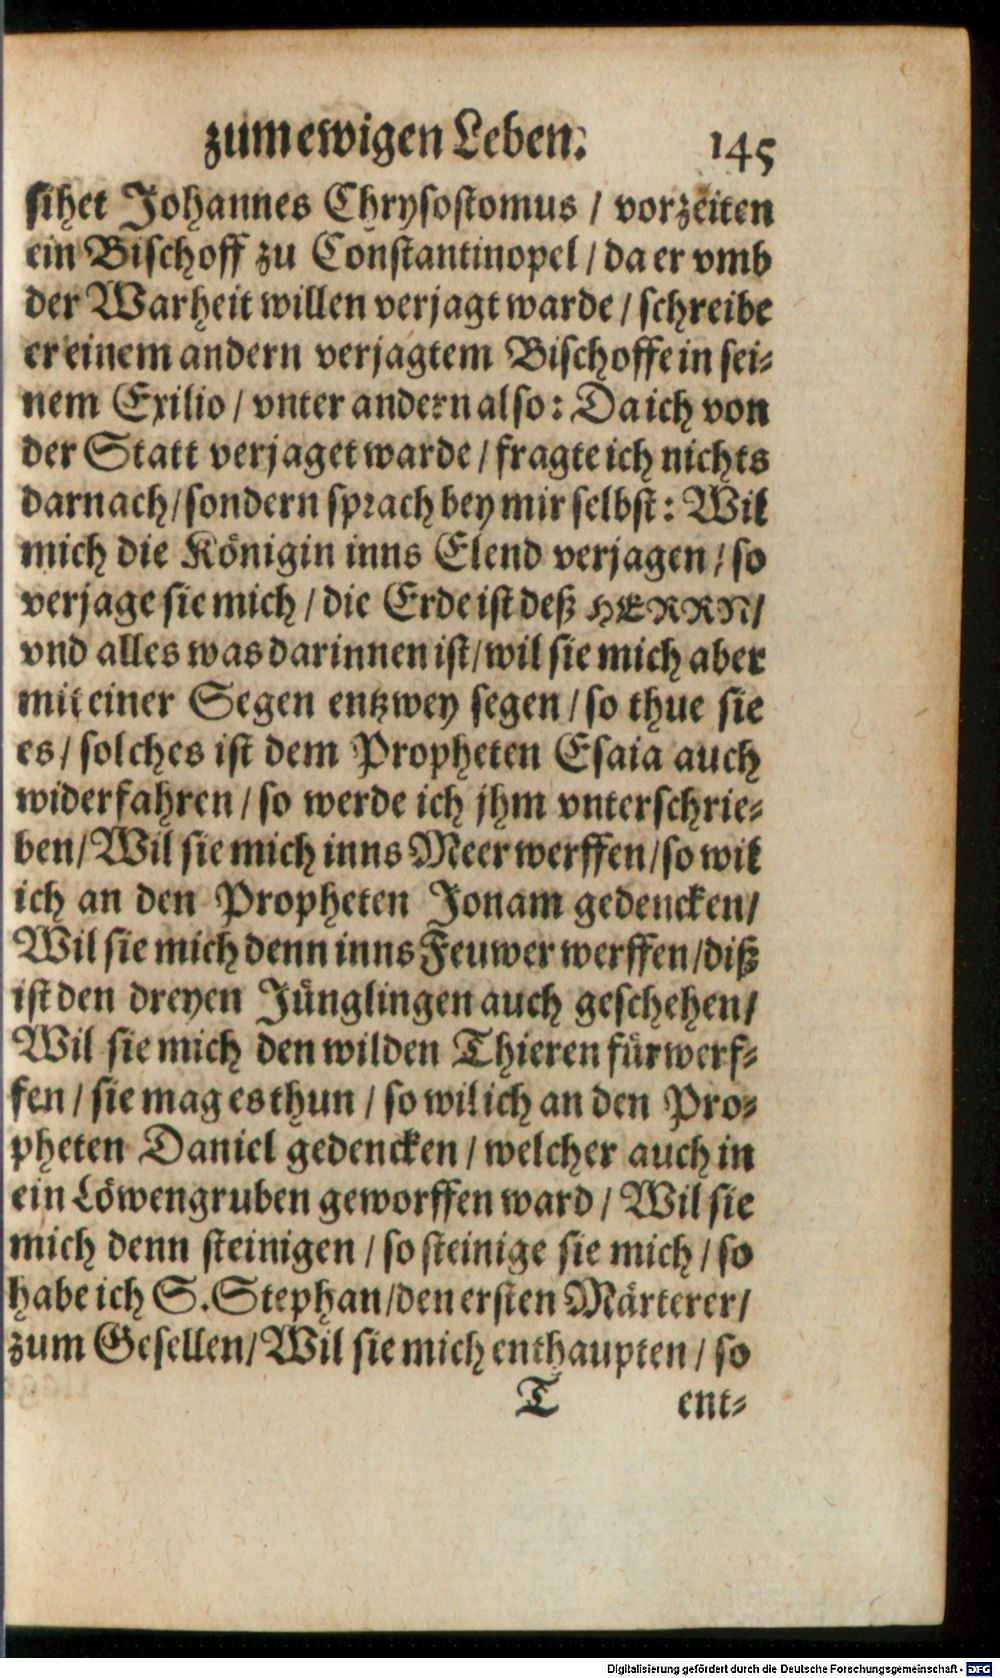 zum ewigen Leben. 145
sihet Johannes Chrysostomus / vorzeiten
ein Bischoff zu Constantinopel / da er vmb
der Warheit willen verjagt warde / schreibe
er einem andern verjagtem Bischoffe in sei-
nem Exilio / vnter andern also: Da ich von
der Statt verjaget warde / fragte ich nichts
darnach / sondern sprach bey mir selbst: Wil
mich die Königin inns Elend verjagen / so
verjage sie mich / die Erde ist deß HERRN /
vnd alles was darinnen ist / wil sie mich aber
mit einer Segen entzwey segen / so thue sie
es / solches ist dem Propheten Esaia auch
widerfahren / so werde ich jhm vnterschrie-
ben / Wil sie mich inns Meer werffen / so wil
ich an den Propheten Jonam gedencken /
Wil sie mich denn inns Feuwer werffen / diß
ist den dreyen Jünglingen auch geschehen /
Wil sie mich den wilden Thieren fürwerf-
fen / sie mag es thun / so wil ich an den Pro-
pheten Daniel gedencken / welcher auch in
ein Löwengruben geworffen ward / Wil sie
mich denn steinigen / so steinige sie mich / so
habe ich S. Stephan / den ersten Märterer /
zum Gesellen / Wil sie mich enthaupten / so
T ent-
Digitalisierung gefördert durch die Deutsche Forschungsgemeinschaft - DFG